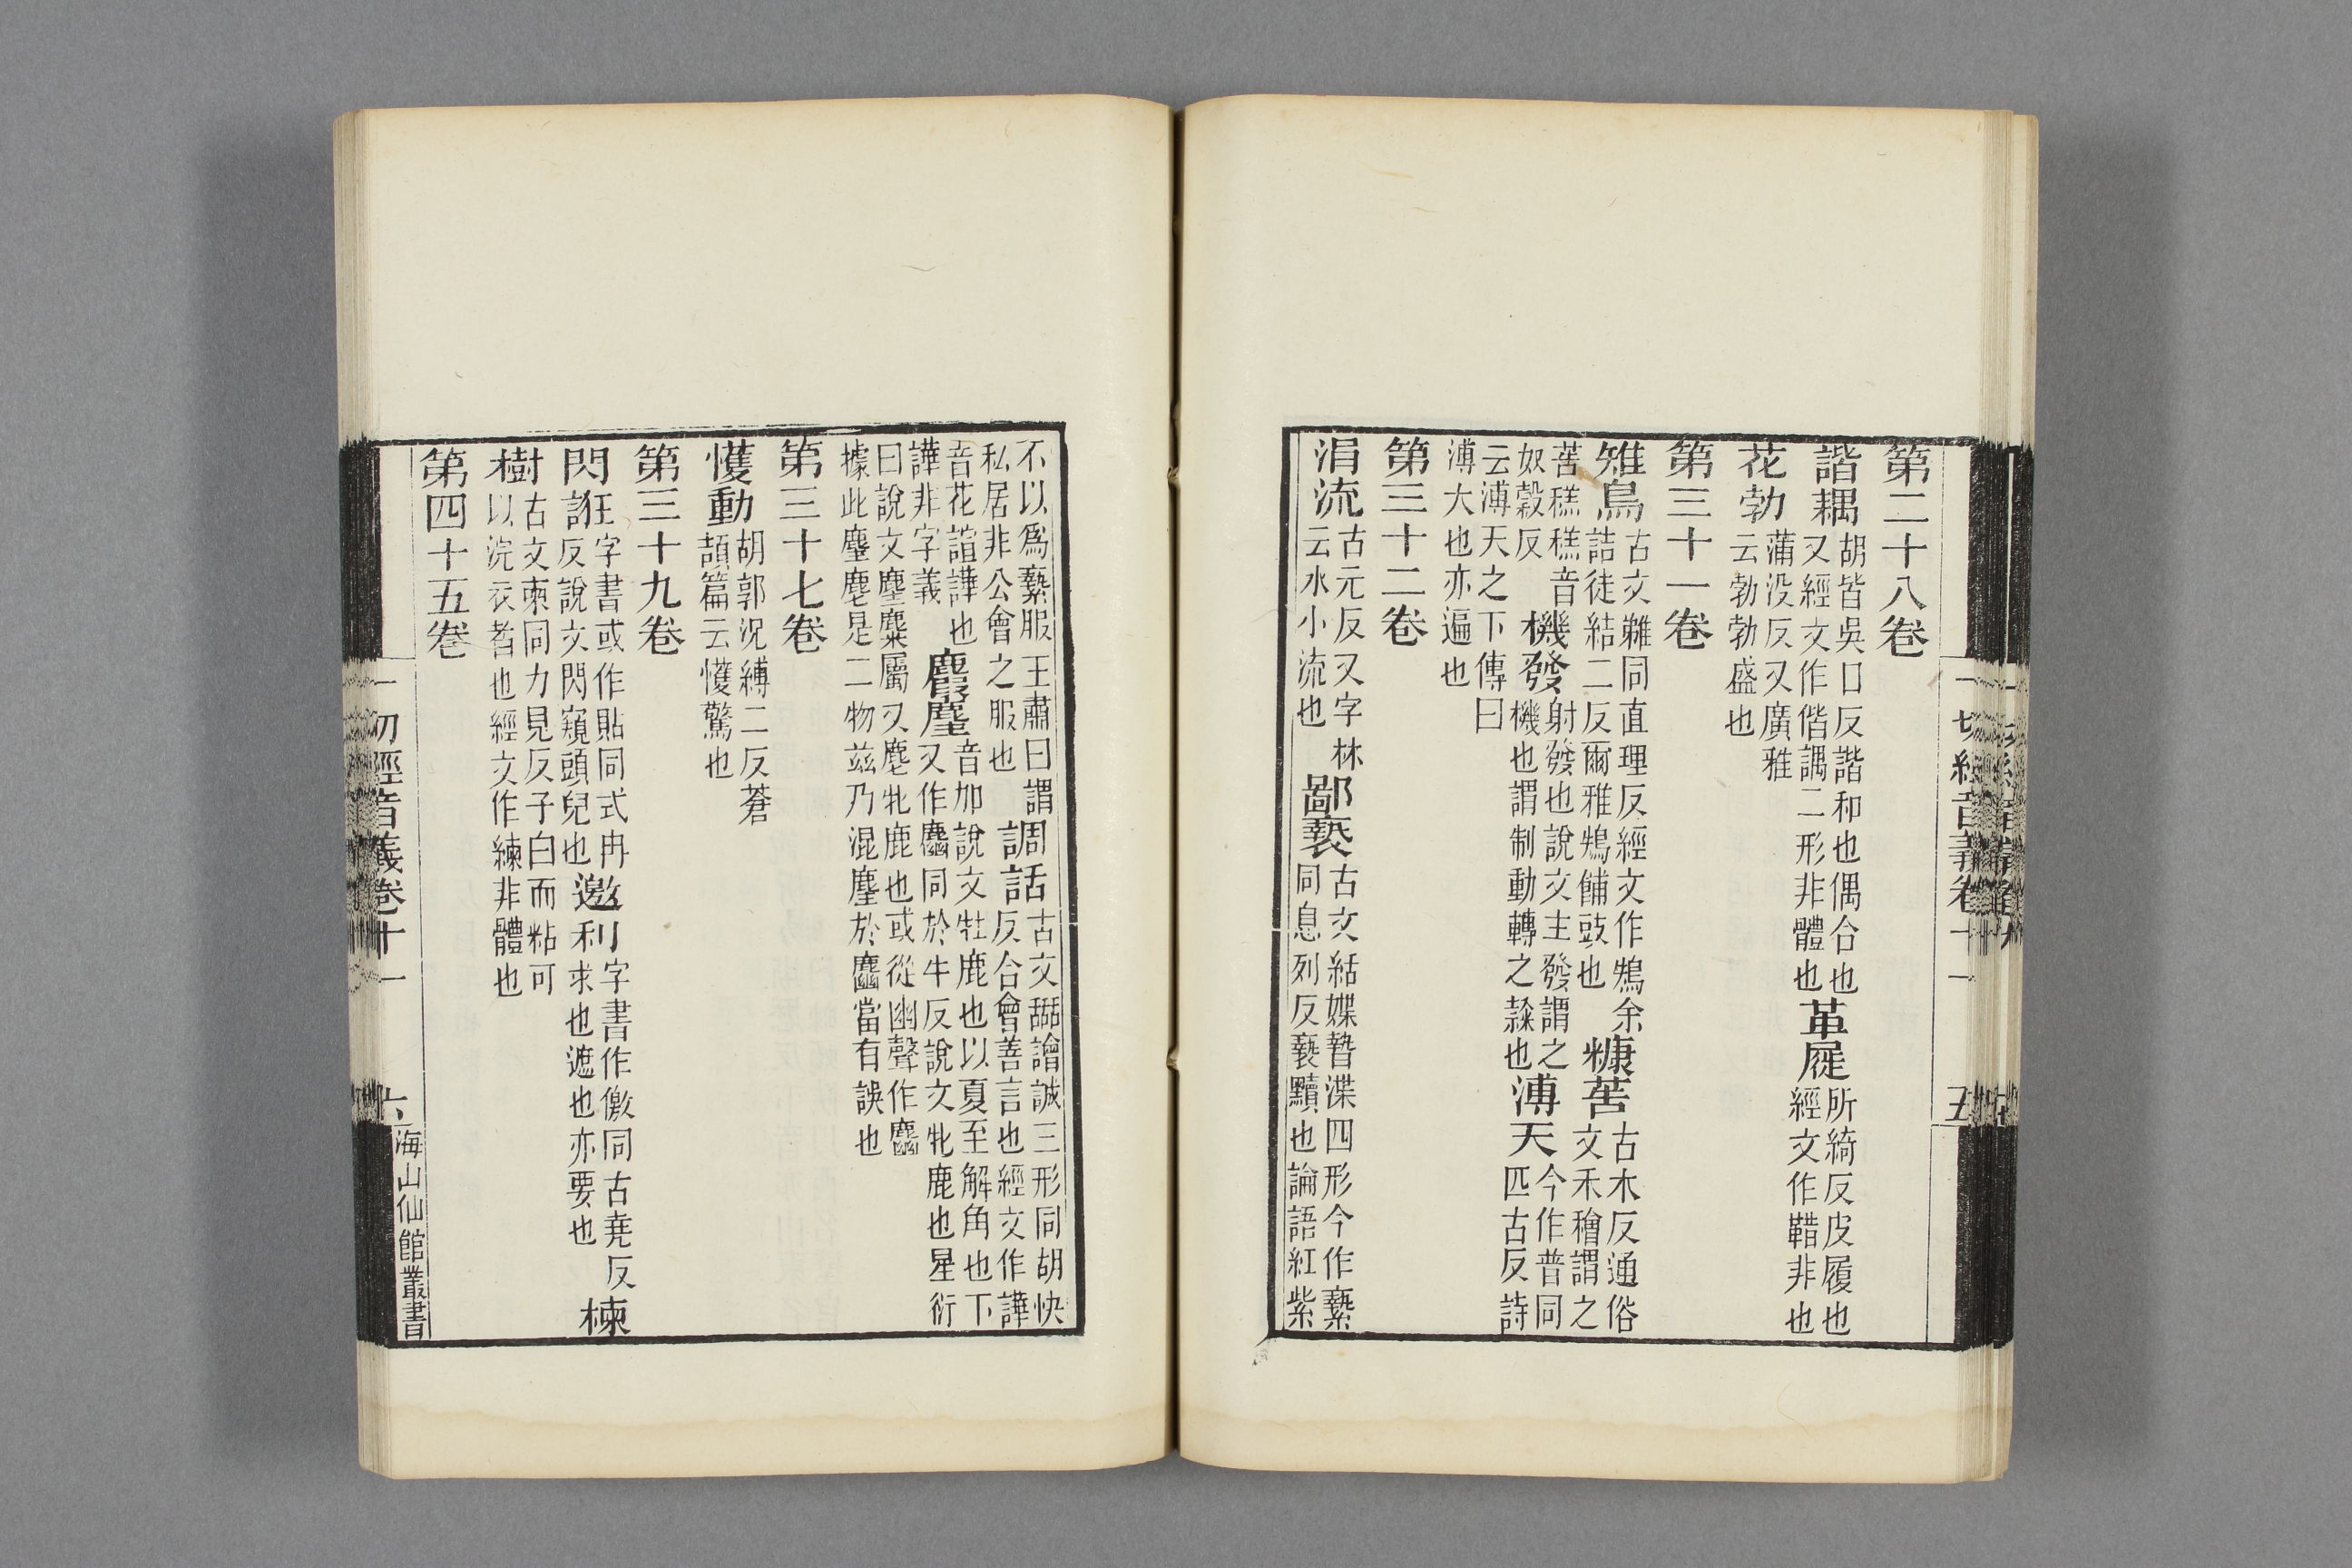 一切經音義卷十一
五
第二十八卷
諧耦胡皆吳口反諧和也偶合也
又經文作偕謂二形非體也
革屣所綺反皮履也
經文作鞜非也
花勃蒲没反又廣雅
云勃勃盛也
第三十一卷
雉鳥古文鴙同直理反經文作鴩余
詰徒結二反爾雅鴩餔豉也
糠䅽古木反通俗
文禾穭謂之
䅽糕糕音
奴穀反
機發射發也說文主發謂之
機也謂制動轉之
也
溥天今作普同
匹古反詩
云溥天之下傳曰
溥大也亦遍也
第三十二卷
涓流古元反又字林
云水小流也
鄙褻古文結媟暬渫四形今作褻
同息列反褻黷也論語紅紫
不以爲褻服王肅曰謂
私居非公會之服也
調話古文䛡譮諴三形同胡快
反合會善言也經文作譁
音花諠譁也
譁非字義
麔麈音加說文牡鹿也以夏至解角也下
又作麤同於牛反說文牝鹿也星衍
曰說文麈麋屬又麀牝鹿也或從幽聲作麤
據此麈麀是二物兹乃混麈於麤當有誤也
第三十七卷
戄動胡郭況縛二反蒼
頡篇云戄驚也
第三十九卷
閃誑字書或作貼同式冉
反說文閃窺頭皃也
邀利字書作儌同古堯反
求也遮也亦要也
楝
樹古文柬同力見反子白而粘可
以浣衣者也經文作練非體也
第四十五卷
一切經音義卷十一
六
海山仙館叢書